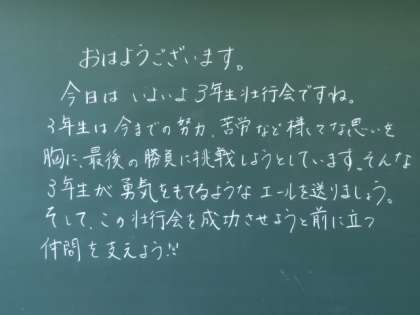 おはようございます。
今日は いよいよ 3年生壮行会ですね。
3年生は今までの努力、苦労など様々な思いを
胸に、最後の勝負に挑戦しようとしています。そんな
3年生が 勇気をもてるような エールを送りましょう。
そして、この壮行会を成功させようと前に立つ
仲間を支えよう!!